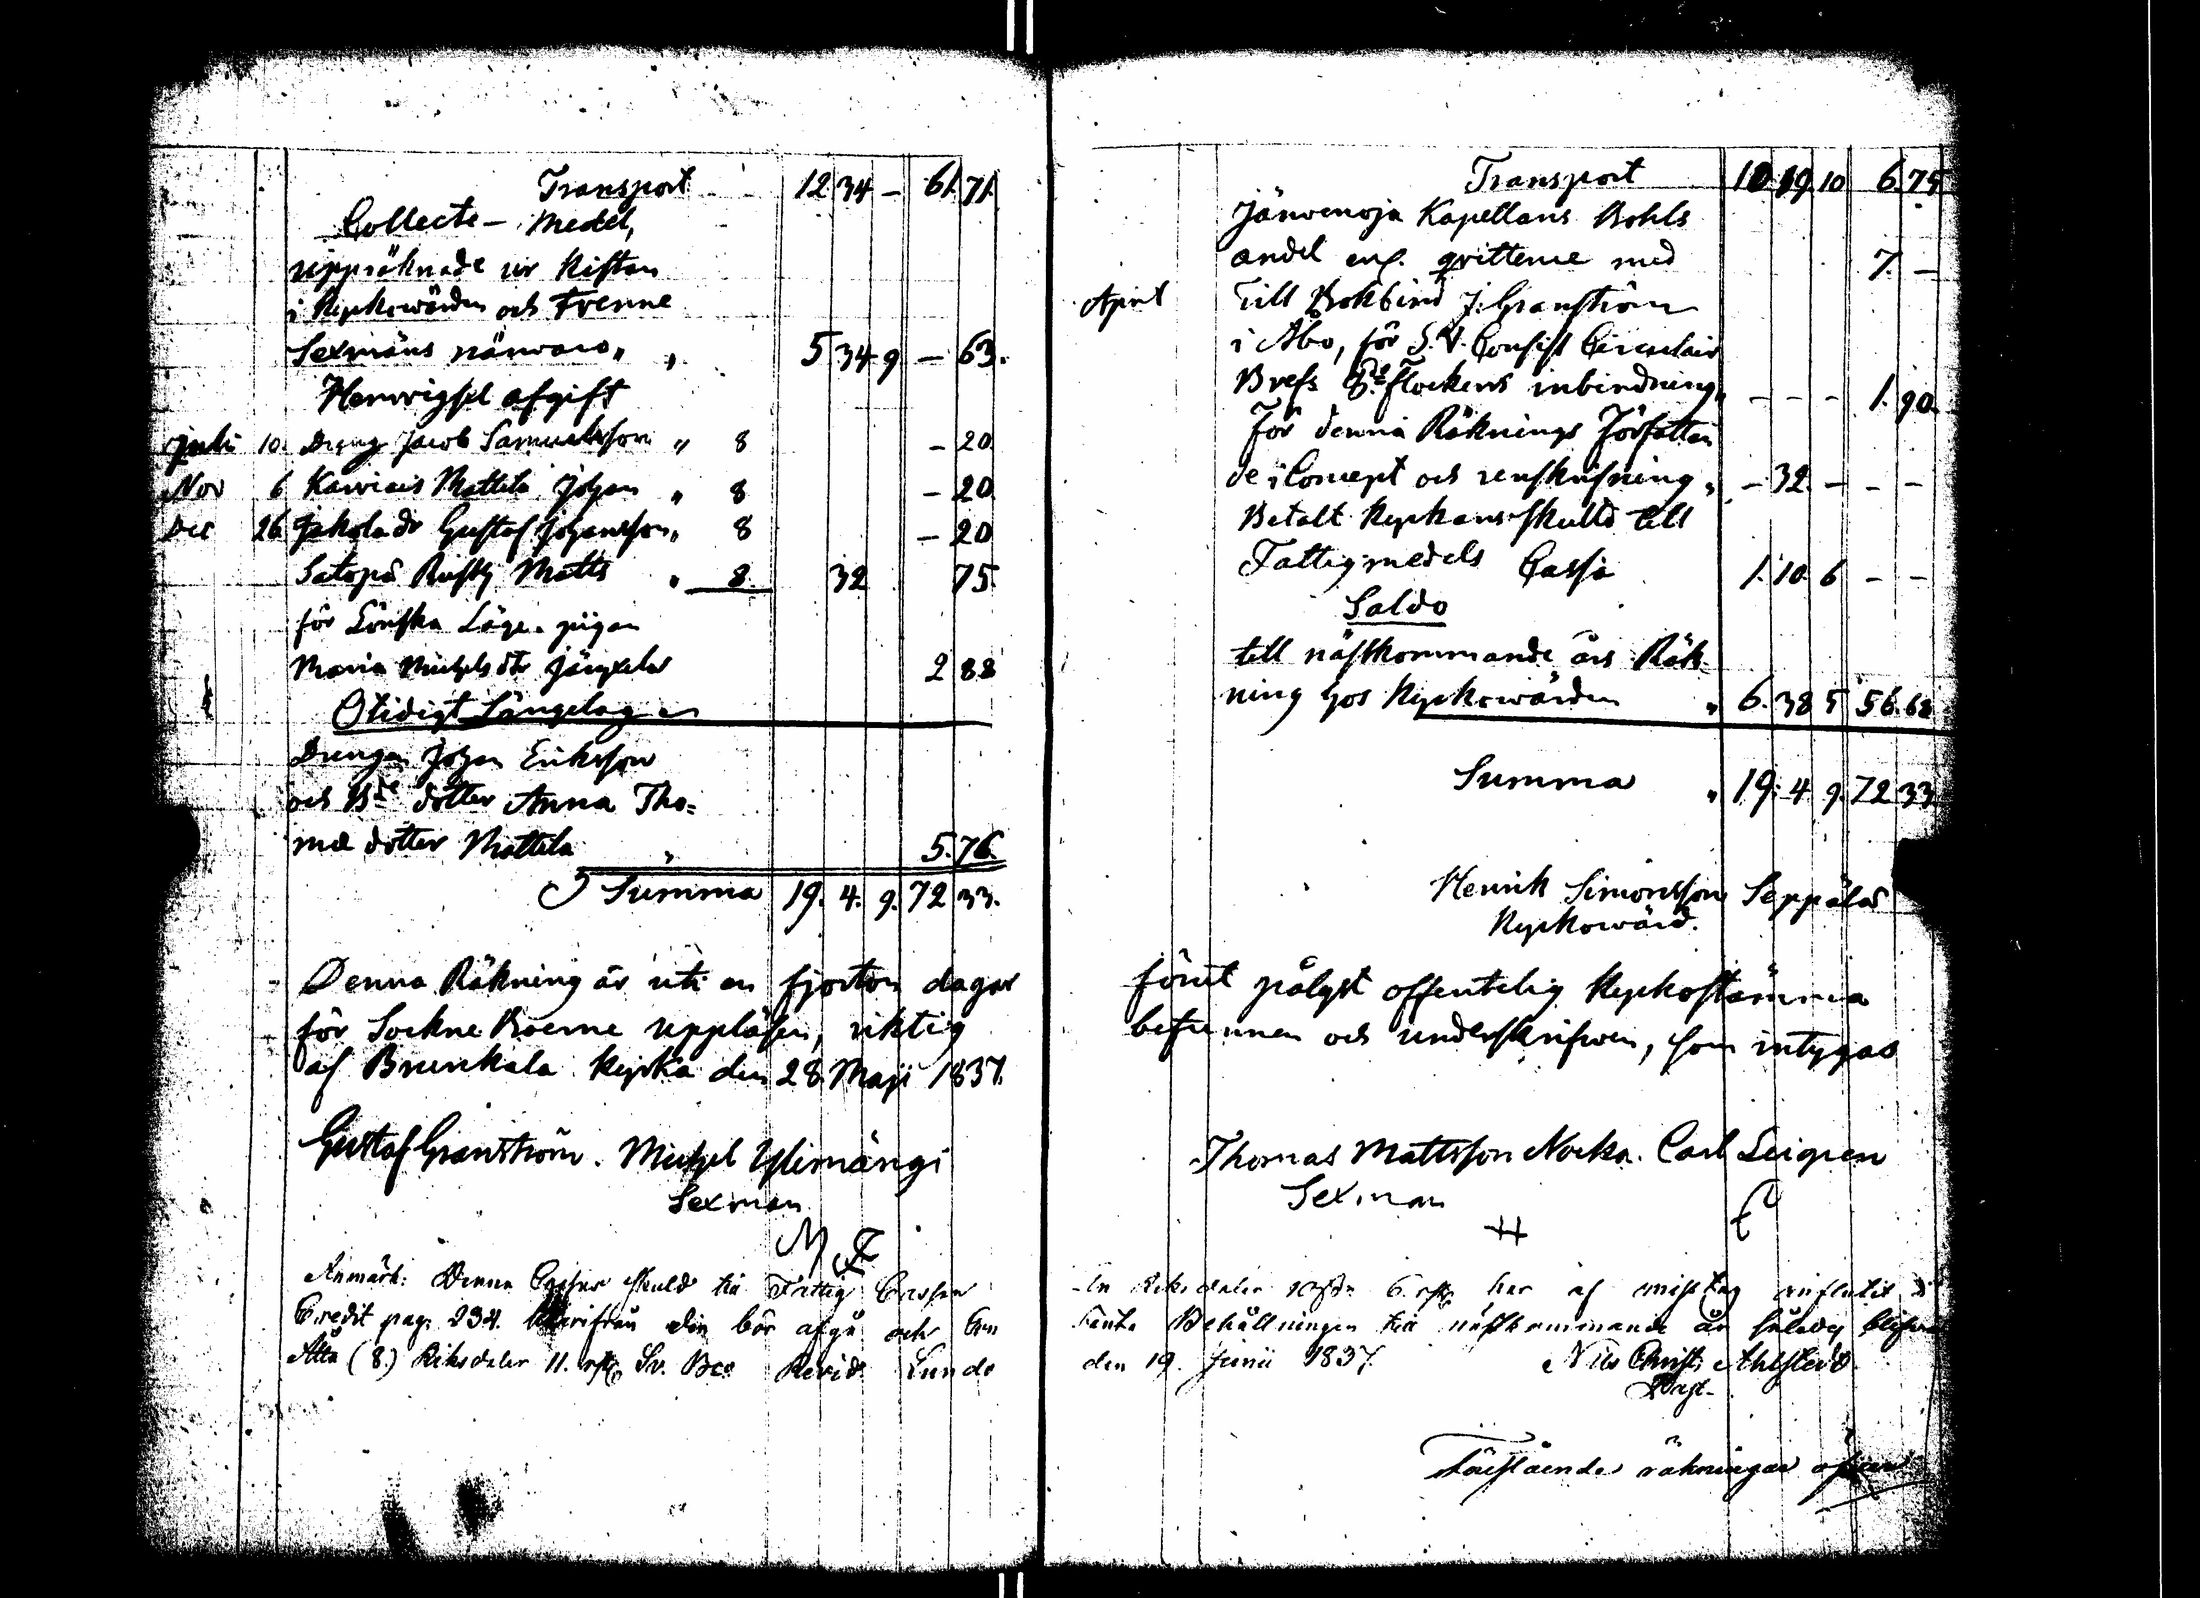 Transport 12 34 - 61. 71.
Collecte - Medel,
uppräknade ur Kistan
i Kyrkowärden och Trenne
Sexmäns närvaro " " 5 34 9 - 63.
afgift
Juli 10. Dreng Jacob Samuelsson " 8 - 20
Nov 6 Mattila Johan " 8 - 20
Dec 26 Jakola dr Gustaf Johansson " 8 - 20
Satopä Matts " 8. 32 75.
för Lönska Läge. pigan
Maria Michelsdtr 2 88
Otidigt Sängelag
Drengen Johan Eriksson
och Bde dotter Anna Tho=
mæ dotter Mattila " 5. 76.
Summa 19. 4. 9. 72 33.
Denna Räkning är uti en fjorton dagar
för Sockne Boerne uppläsen, riktig
af Brunkala Kyrka den 28 Maji 1837.
Gustaf Granström. Michel Ylimängi
Sexman
Anmärk: Denna Cassas skuld till Fattig Cassan
Credit pag. 234. den bör afgå och
Åtta (8.) Riksdaler 11. rst. Sv. Bco
Transport 10 19. 10 6. 75
Järvenoja Kapellans Bohls
andel enl. qvittence med 7. -
April Till Bokbind J. Granström
i Åbo, för S. V. Consist Circulair
Brefs inbindning " - - - 1. 90.
För denna Räknings Författa
de i Concept och renskrifning " - 32. - - -
Betalt Kyrkans skuld till
Fattigmedels Cassa 1. 10. 6 - -
Saldo
till nästkommande års Räk-
ning hos Kyrkowärden " 6. 38 5 56. 68
Summa " 19. 4 9. 72 33
Henrik Simonsson Seppälä
Kyrkowärd.
förut pålyst offentelig Kyrkostämma
befunnen och underskrifwen, som intygas
Thomas Mattsson Nocka. Carl
Sexman
Riksdaler 6. rst. har af misstag influtit
Behållningen till nästkommande år således blifva
den 19. Junii 1837. Nils Christ. Ahlstedt
Past.
Förestående räkningar